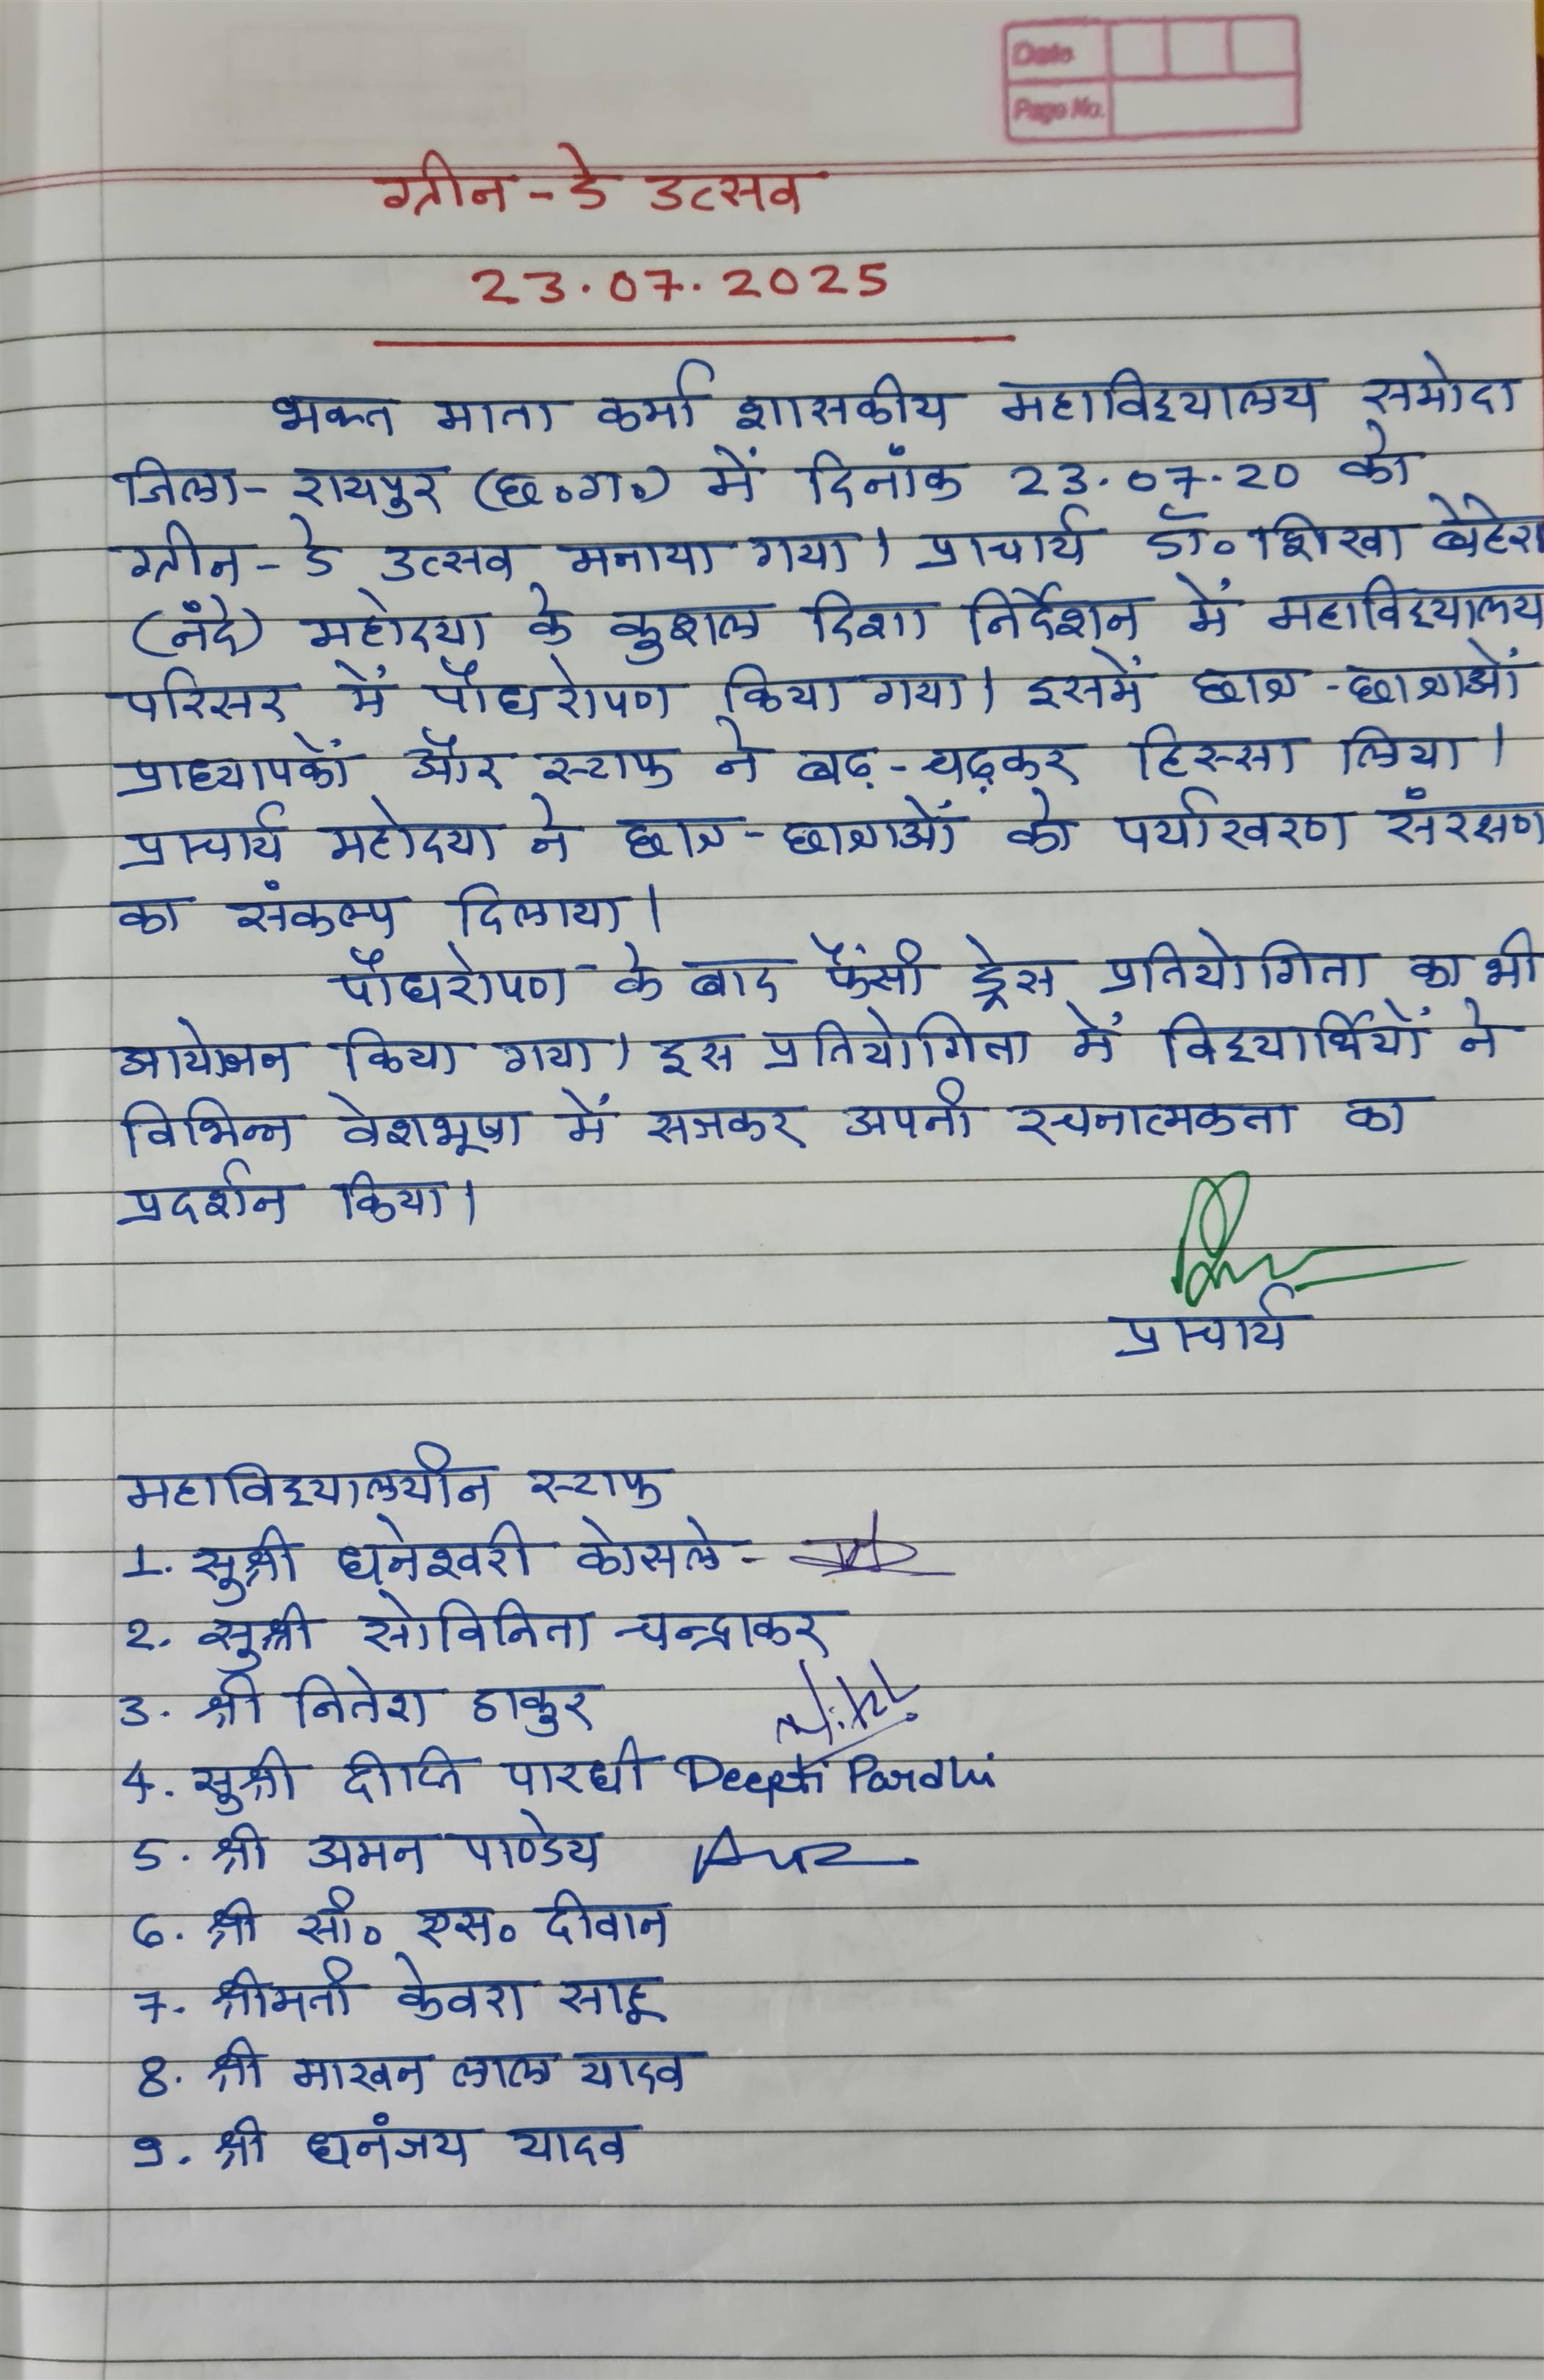 Date
Page No.
ग्रीन - डे उत्सव
23.07.2025
भक्त माता कर्मा शासकीय महाविद्यालय समोदा
जिला - रायपुर (छ०ग०) में दिनांक 23.07.20 को
ग्रीन - डे उत्सव मनाया गया। प्राचार्य डॉ० शिखा बेहेरा
(नंदे) महोदया के कुशल दिशा निर्देशन में महाविद्यालय
परिसर में पौधरोपण किया गया। इसमें छात्र - छात्राओं
प्राध्यापकों और स्टाफ ने बढ़ - चढ़कर हिस्सा लिया।
प्राचार्य महोदया ने छात्र - छात्राओं को पर्यावरण संरक्षण
का संकल्प दिलाया।
पौधरोपण के बाद फैंसी ड्रेस प्रतियोगिता का भी
आयोजन किया गया। इस प्रतियोगिता में विद्यार्थियों ने
विभिन्न वेशभूषा में सजकर अपनी रचनात्मकता का
प्रदर्शन किया।
प्राचार्य
महाविद्यालयीन स्टाफ
1. सुश्री धनेश्वरी कोसले -
2. सुश्री सोविनिता चन्द्राकर
3. श्री नितेश ठाकुर
4. सुश्री दीप्ति पारधी Deepti Pardhi
5. श्री अमन पाण्डेय
6. श्री सी० एस० दीवान
7. श्रीमती केवरा साहू
8. श्री माखन लाल यादव
9. श्री धनंजय यादव